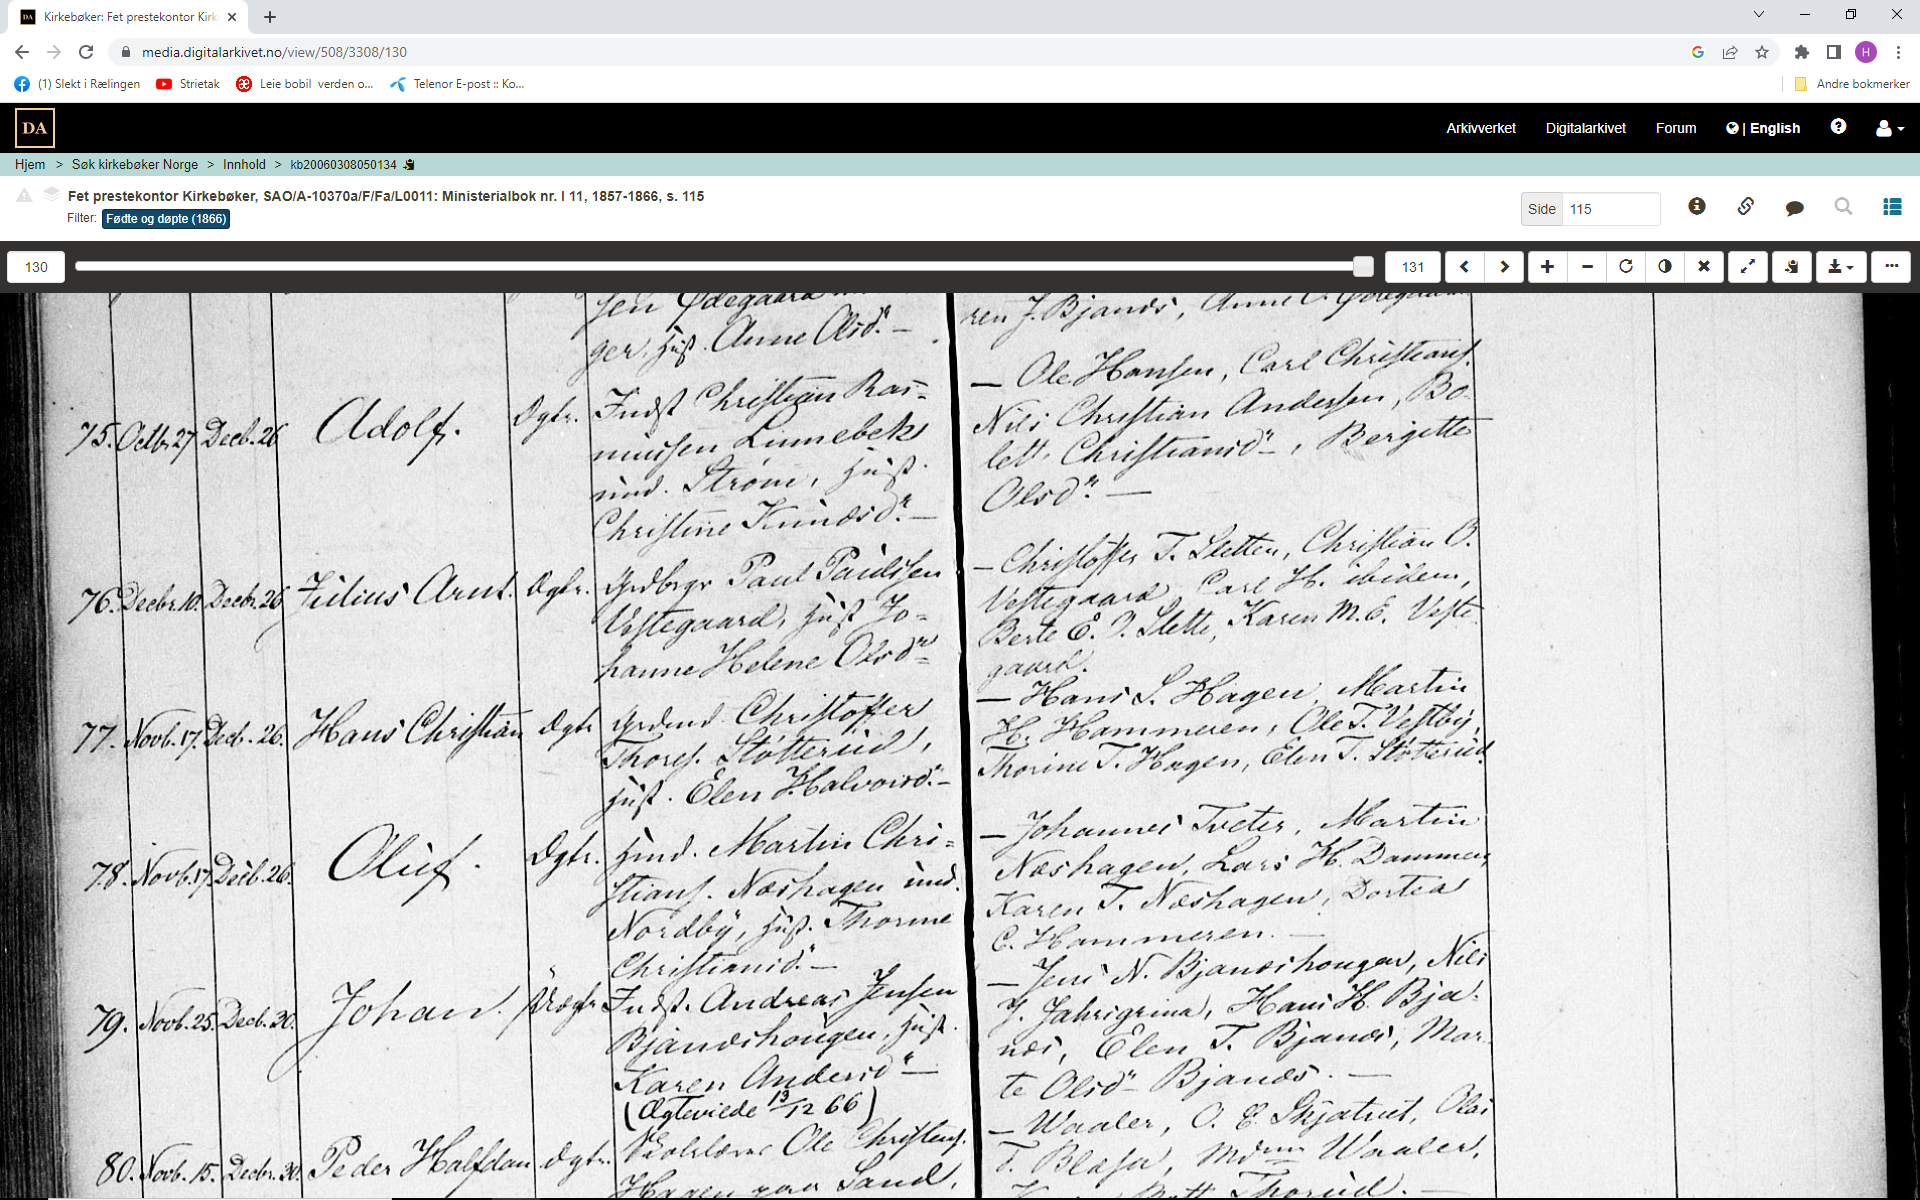 Kirkebøker: Fet prestekontor Kirk
media.digitalarkivet.no/view/508/3308/130
H
(1) Slekt i Rælingen
Strietak
Leie bobil verden o...
Telenor E-post :: Ko...
Andre bokmerker
DA
Arkivverket Digitalarkivet Forum | English
Hjem > Søk kirkebøker Norge > Innhold > kb20060308050134
Fet prestekontor Kirkebøker, SAO/A-10370a/F/Fa/L0011: Ministerialbok nr. I 11, 1857-1866, s. 115
Filter: Fødte og døpte (1866)
Side 115
130
131
sen Ødegaard
ger, hust. Anne Olsd.
ren J. Bjanæs, Anne O.
75. Octbr. 27 Decb. 26 Adolf. Ægte.
Indst Christian Ras-
mussen Lunnebek
und. Strøm, hust.
Christine Knudsd. —
— Ole Hansen, Carl Christians.
Nils Christian Andersen, Bo-
lett. Christiansd., Bergitte
Olsd. —
76. Decbr. 10. Decbr. 26 Julius Arnt. Ægte.
Grdbrgr Paul Paulsen
Vestegaard, hust Jo-
hanne Helene Olsd.
— Christoffer T. Sletten, Christian O.
Vestegaard Carl H. ibidem,
Berte E. O. Slette, Karen M. E. Veste-
gaard.
77. Novb. 17. Decb. 26. Hans Christian Ægte
Grdmd. Christoffer
Thores. Støtterud,
hust. Elen Halvorsd. —
— Hans S. Hagen, Martin
H. Hammeren, Ole T. Vestby,
Thorine T. Hagen, Elen T. Støtterud
78. Novb. 17. Decb. 26. Oluf. Ægte.
Hmd. Martin Chri-
stians. Næshagen und.
Nordby, hust. Thorine
Christiansd. —
— Johannes Tveter, Martin
Næshagen, Lars H. Dammen,
Karen T. Næshagen, Dortea
C. Hammeren. —
79. Novb. 25. Decb. 30. Johan. Uægte
Indst. Andreas Jensen
Bjanæshougen, hust.
Karen Andersd. —
(Ægteviede 13/12 66)
— Jens N. Bjanæshougen, Nils
J. Jahrigrina, Hans H. Bja-
næs, Elen T. Bjanæs, Mar-
te Olsd. Bjanæs. —
80. Novb. 15. Decbr. 30. Peder Halfdan Ægte.
Skolelærer Ole Christens.
Hagen paa Sand,
— Waaler, O. E. Skjatvet, Olai
T. Blaker, Waaler,
Thorud. —